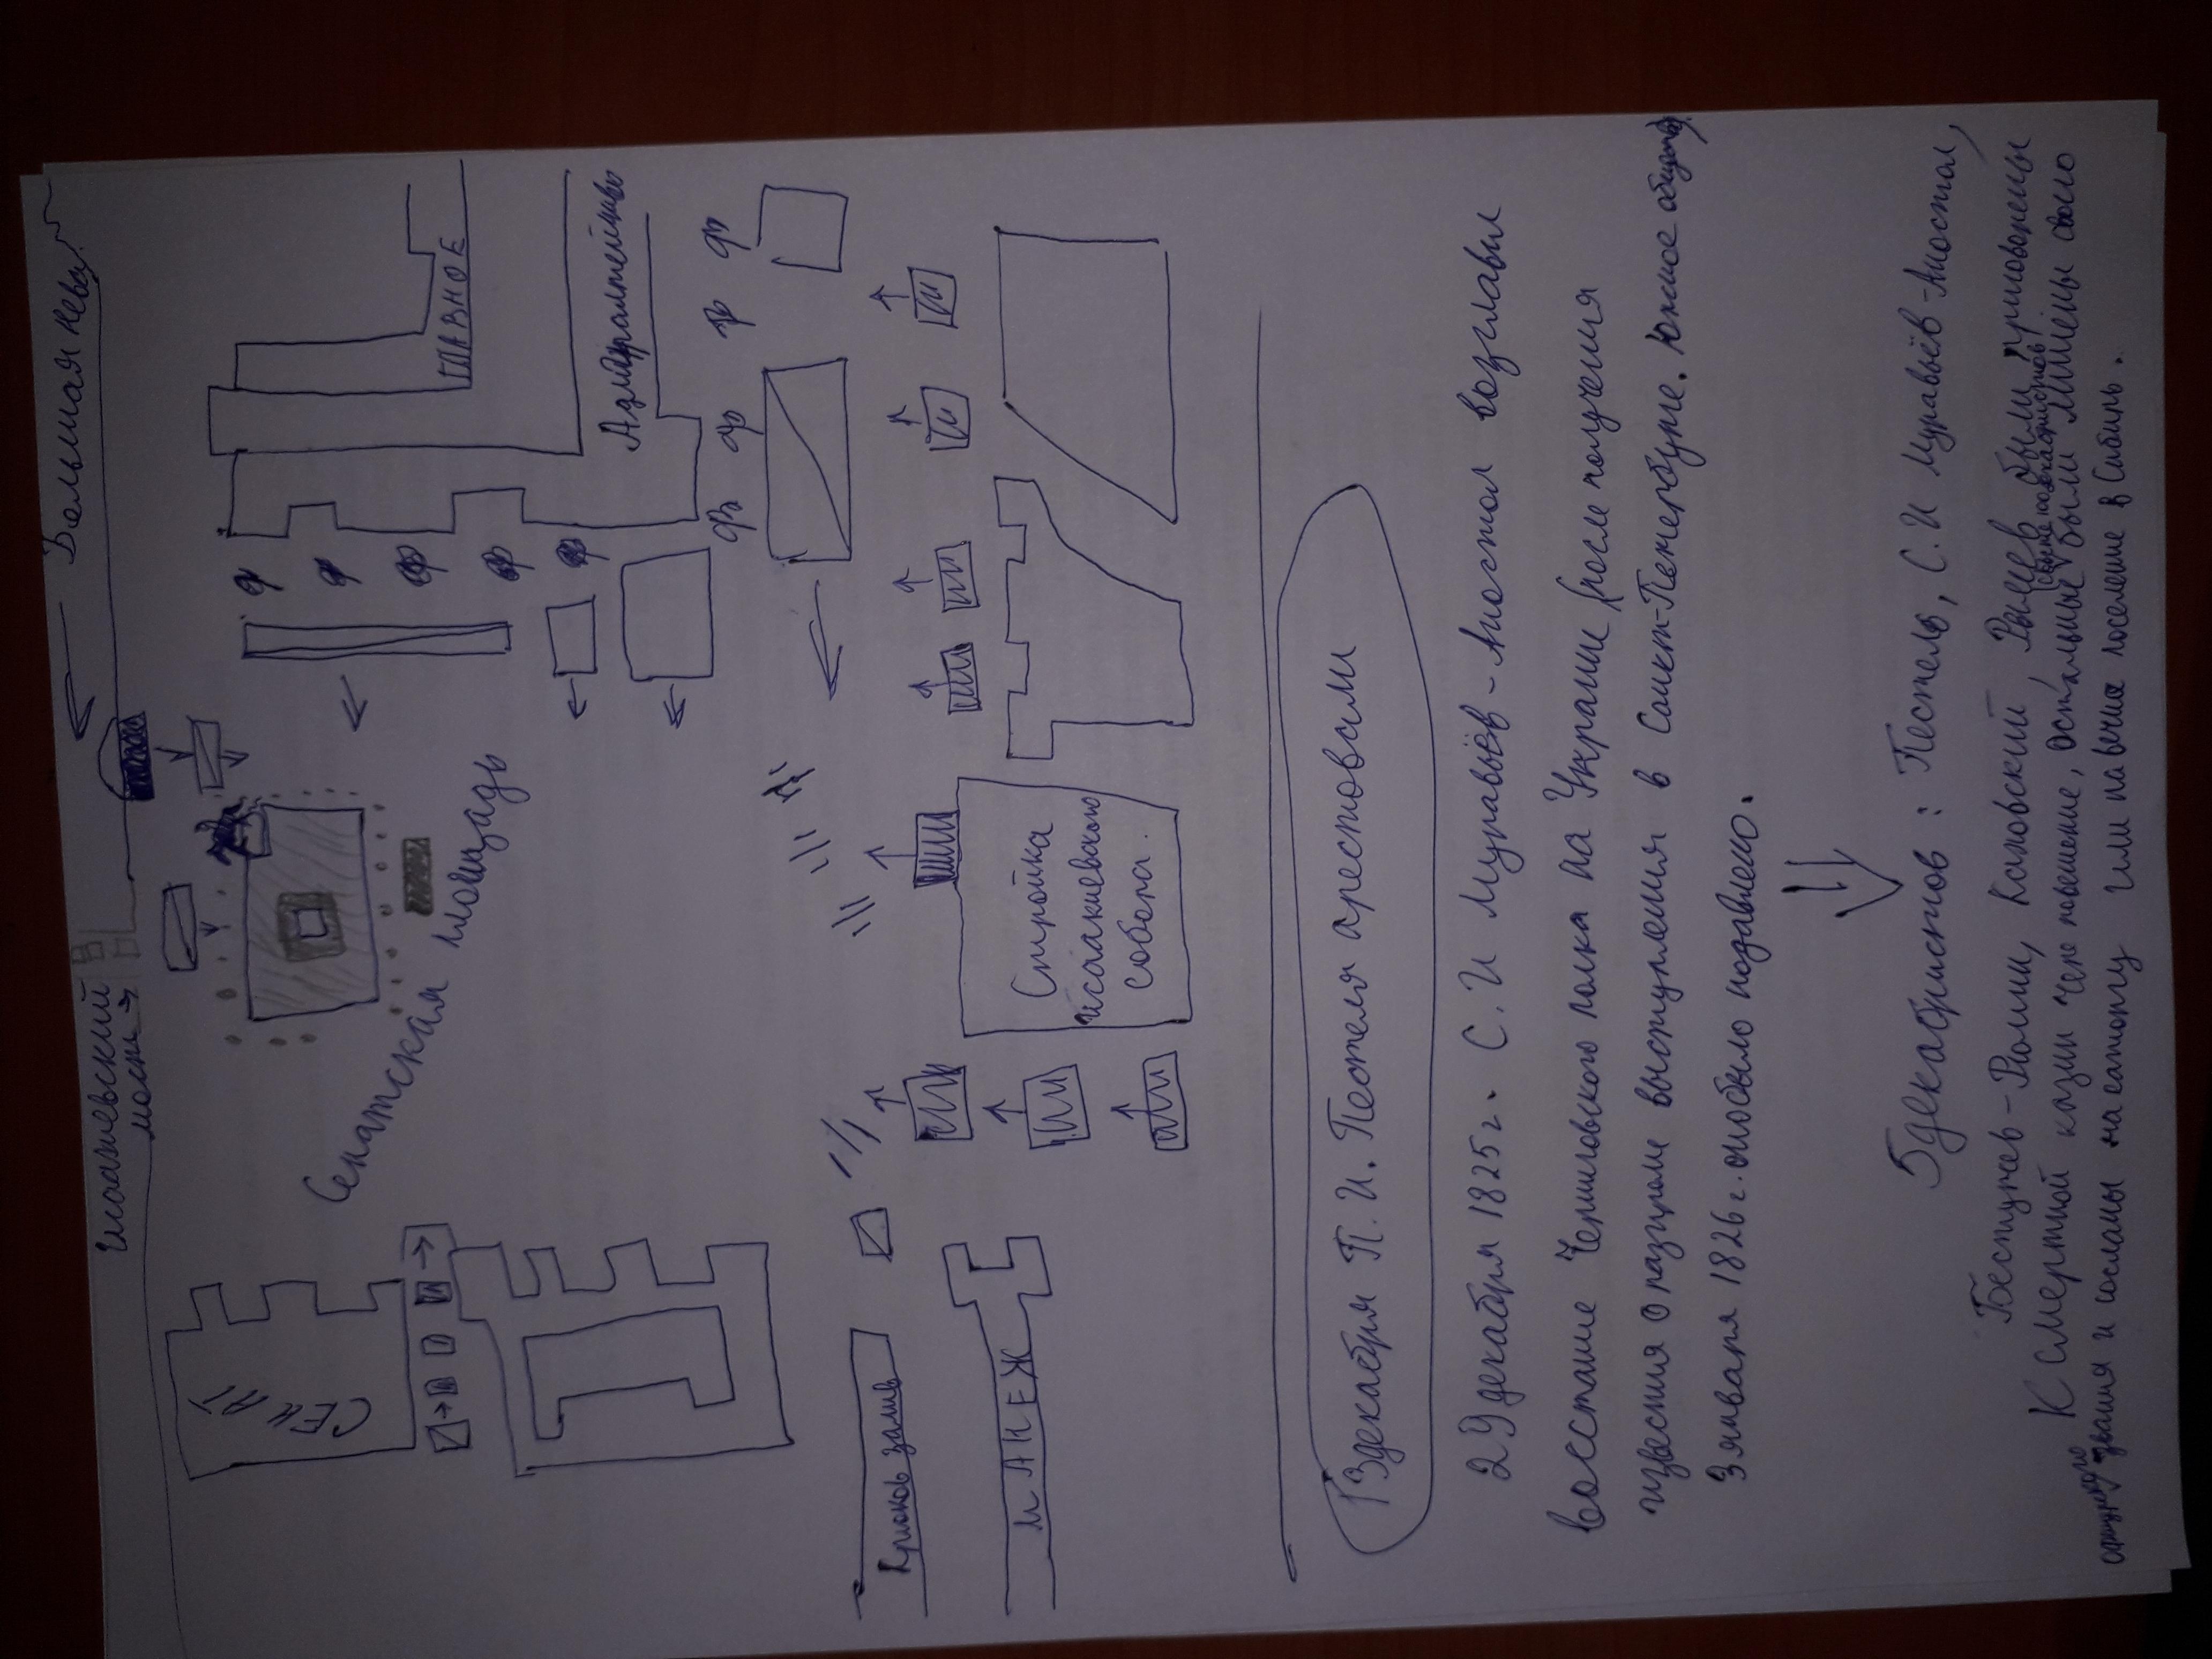 Большая Нева
Исаакиевский
мост →
ГЛАВНОЕ
Адмиралтейство
СЕНАТ
Сенатская площадь
Крюков залив
МАНЕЖ
Стройка
Исаакиевского
собора.
13 декабря П. И. Пестеля арестовали
29 декабря 1825 г. С. И Муравьёв-Апостол возглавил
восстание Черниговского полка на Украине (после получения
известия о разгроме выступления в Санкт-Петербурге. Южное
3 января 1826 г. оно было подавлено.
5 декабристов : Пестель, С. И Муравьёв-Апостол,
Бестужев-Рюмин, Каховский, Рылеев были приговорены
К смертной казни через повешение, остальные были лишены
звания и сосланы на каторгу или на вечное поселение в Сибирь.